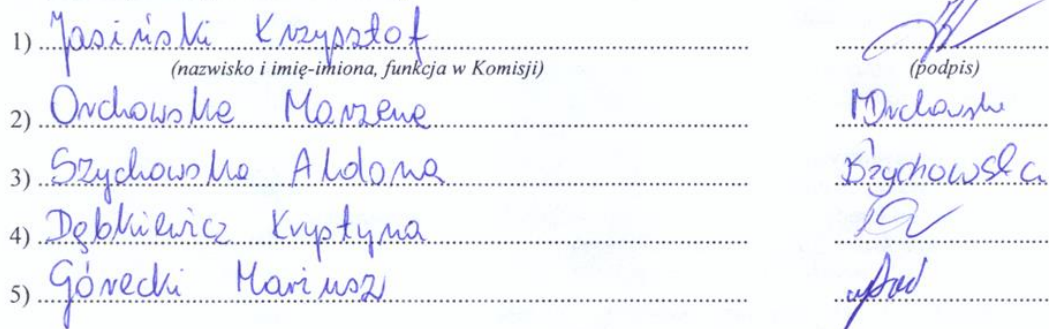 1) Jasiński Krzysztof
(nazwisko i imię-imiona, funkcja w Komisji) (podpis)
2) Orchowska Marzena MOrchowska
3) Szychowska Aldona Szychowska
4) Dębkiewicz Krystyna
5) Górecki Mariusz